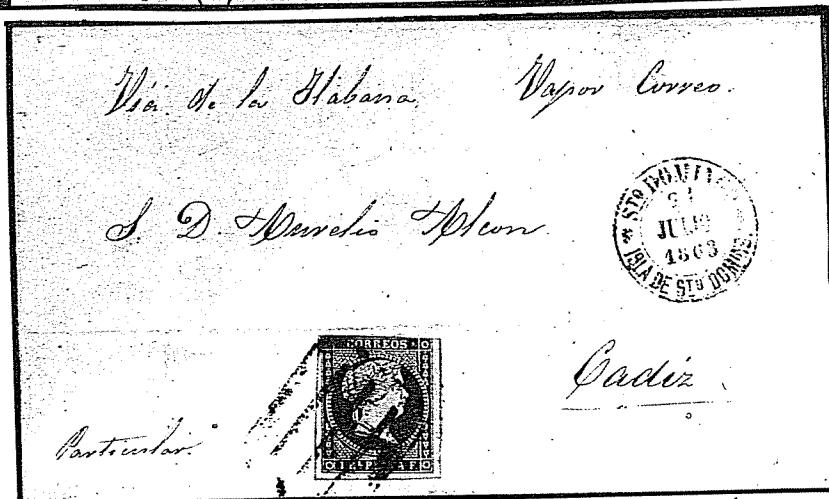 Via de la Habana. Vapor Correo.
S. D. Aurelio Alcon.
STO DOMINGO
21
JULIO
1863
ISLA DE STO DOMINGO
CORREOS
Cadiz
Particular.